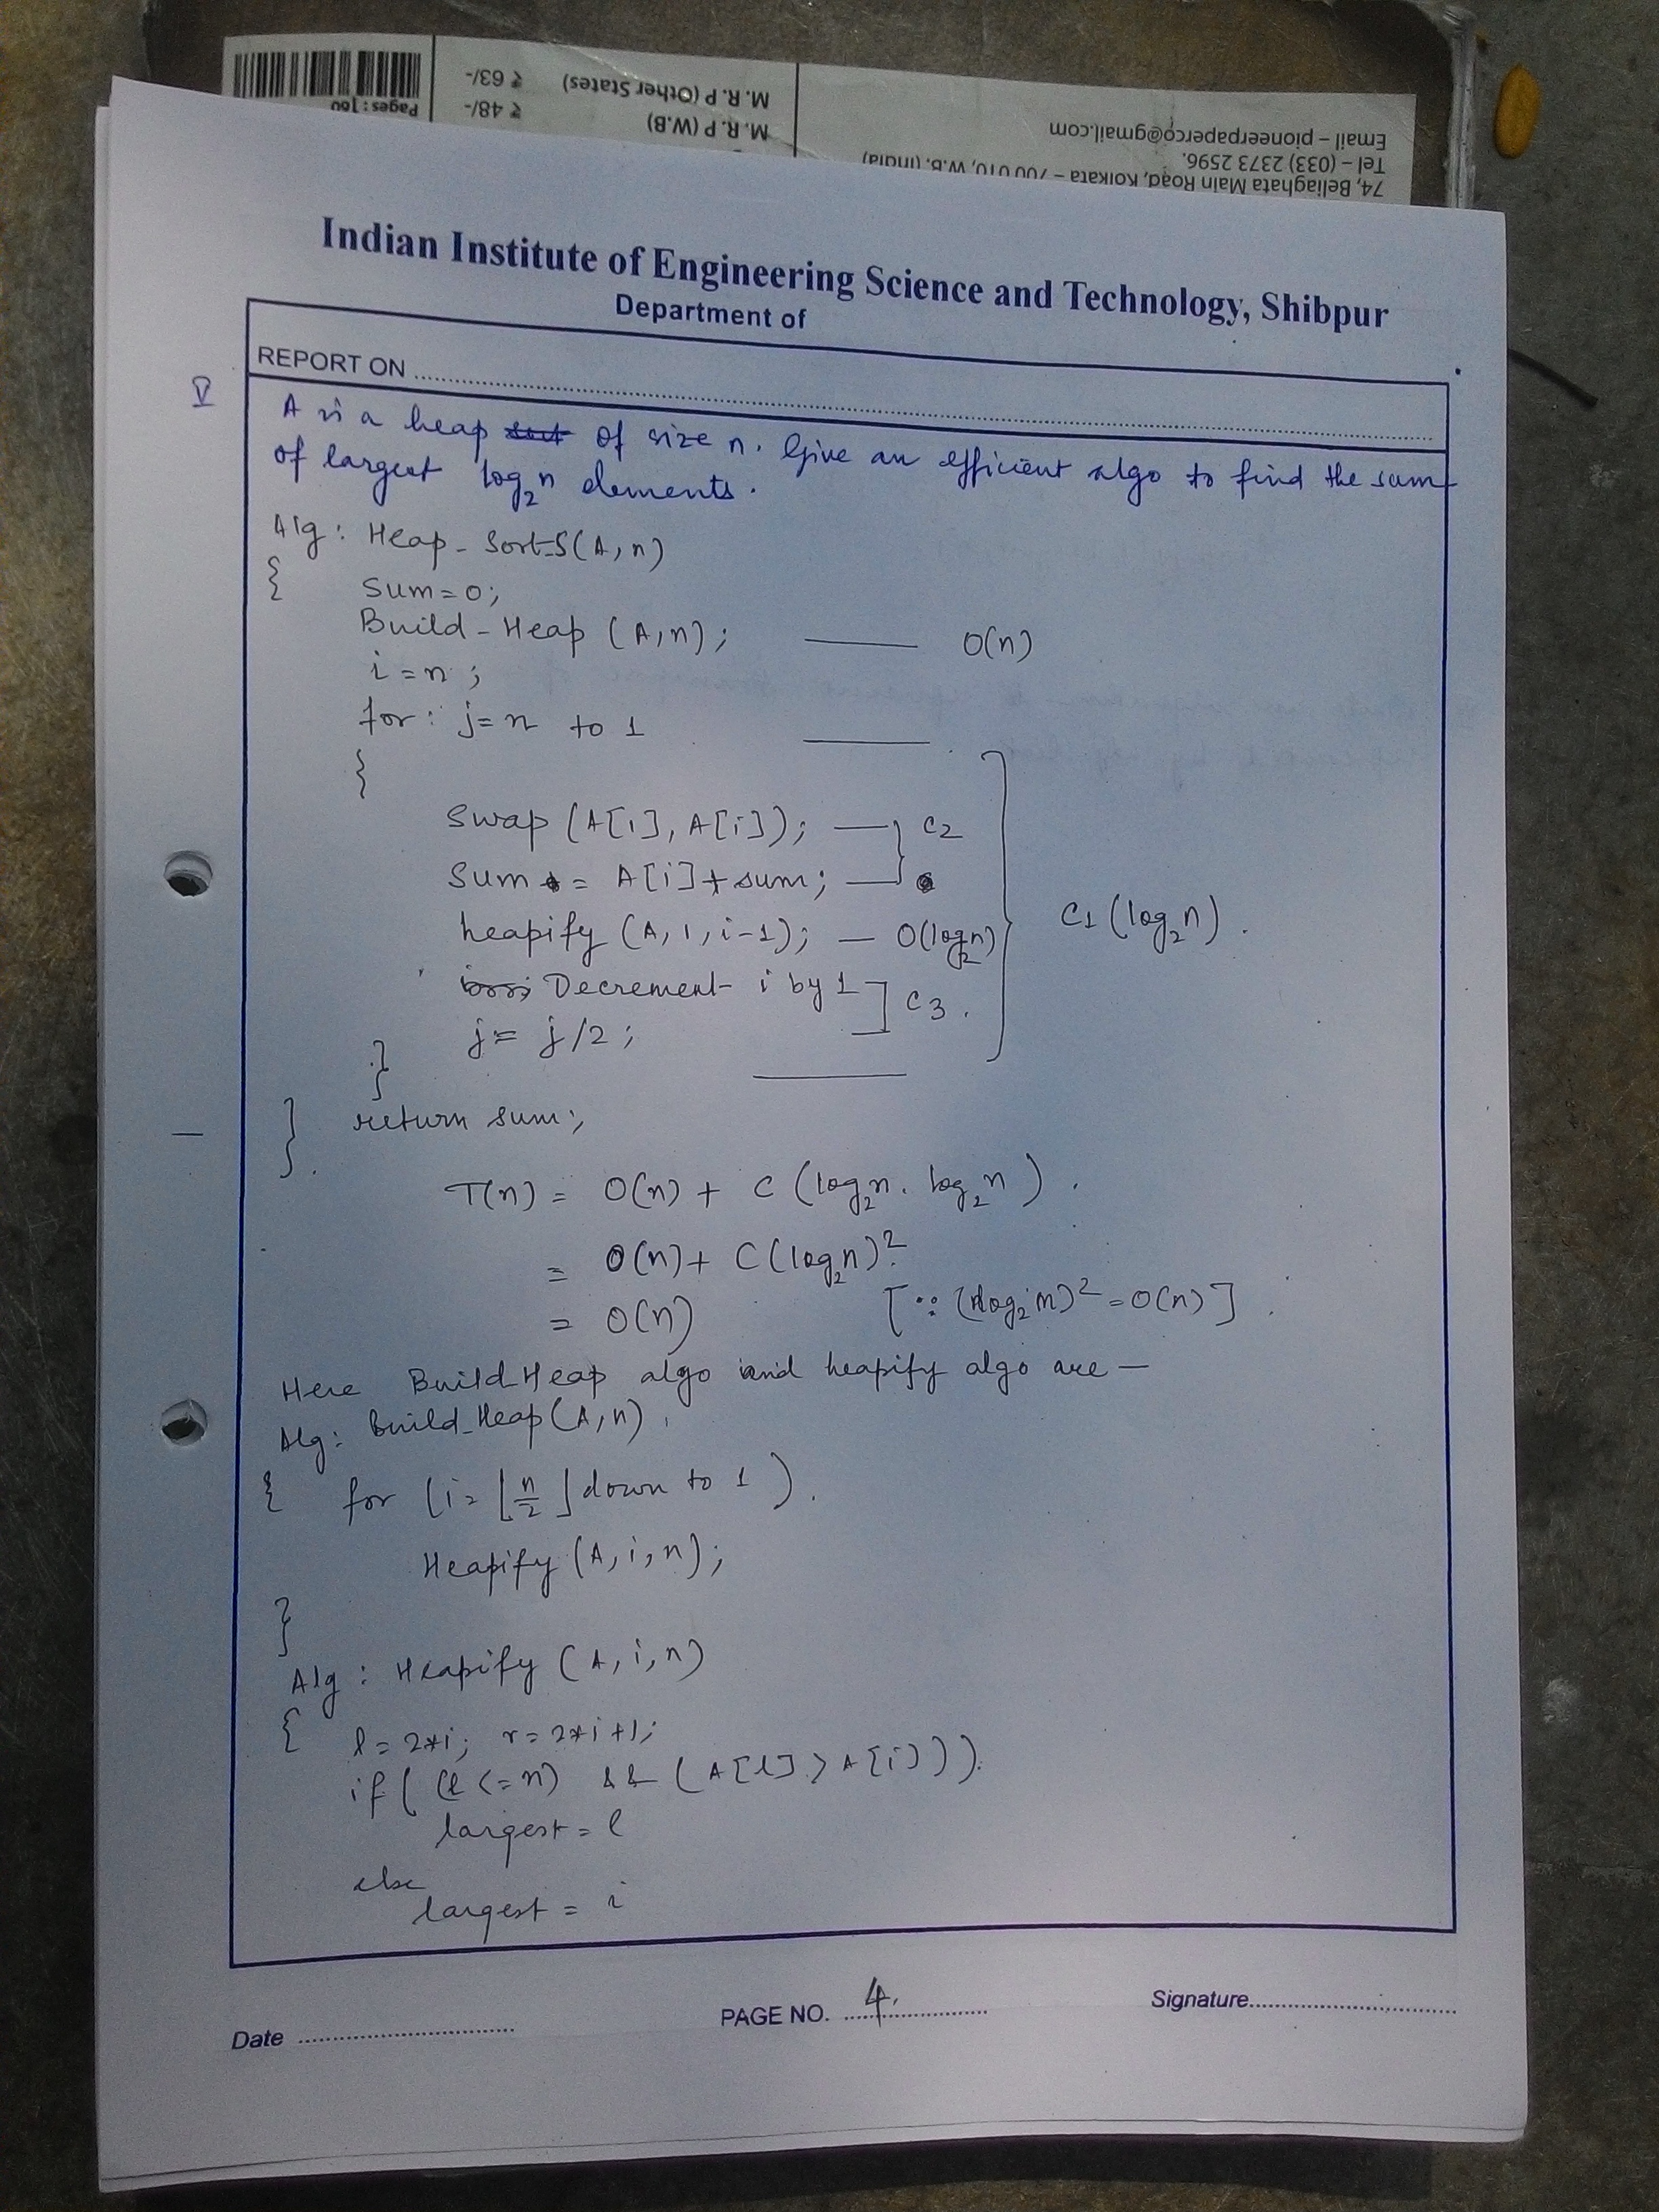 Indian Institute of Engineering Science and Technology, Shibpur
Department of
REPORT ON
V
A is a heap of size n. Give an efficient algo to find the sum
of largest log₂n elements.
Alg: Heap-Sort-S(A,n)
{
Sum=0;
Build-Heap (A,n); — O(n)
i=n;
for: j=n to 1
{
Swap (A[1], A[i]); — C2
Sum = A[i]+sum; —
heapify (A,1,i-1); — O(log₂n)
Decrement i by 1 ] C3.
j = j/2;
C1(log₂n).
}
return sum;
}
T(n) = O(n) + C (log₂n. log₂n).
= O(n) + C(log₂n)²
= O(n) [∵ (log₂n)² = O(n)]
Here Build-Heap algo and heapify algo are —
Alg: Build-Heap(A,n).
{ for (i= ⌊n/2⌋ down to 1).
Heapify (A,i,n);
}
Alg: Heapify (A,i,n)
{ l=2*i; r=2*i+1;
if ((l<=n) && (A[l]>A[i]))
largest = l
else
largest = i
Date
PAGE NO. 4.
Signature
74, Beliaghata Main Road, Kolkata – 700 010, W.B. (India)
Tel – (033) 2373 2596.
Email – pioneerpaperco@gmail.com
M. R. P (W.B) ₹ 48/-
M. R. P (Other States) ₹ 63/-
Pages : 160